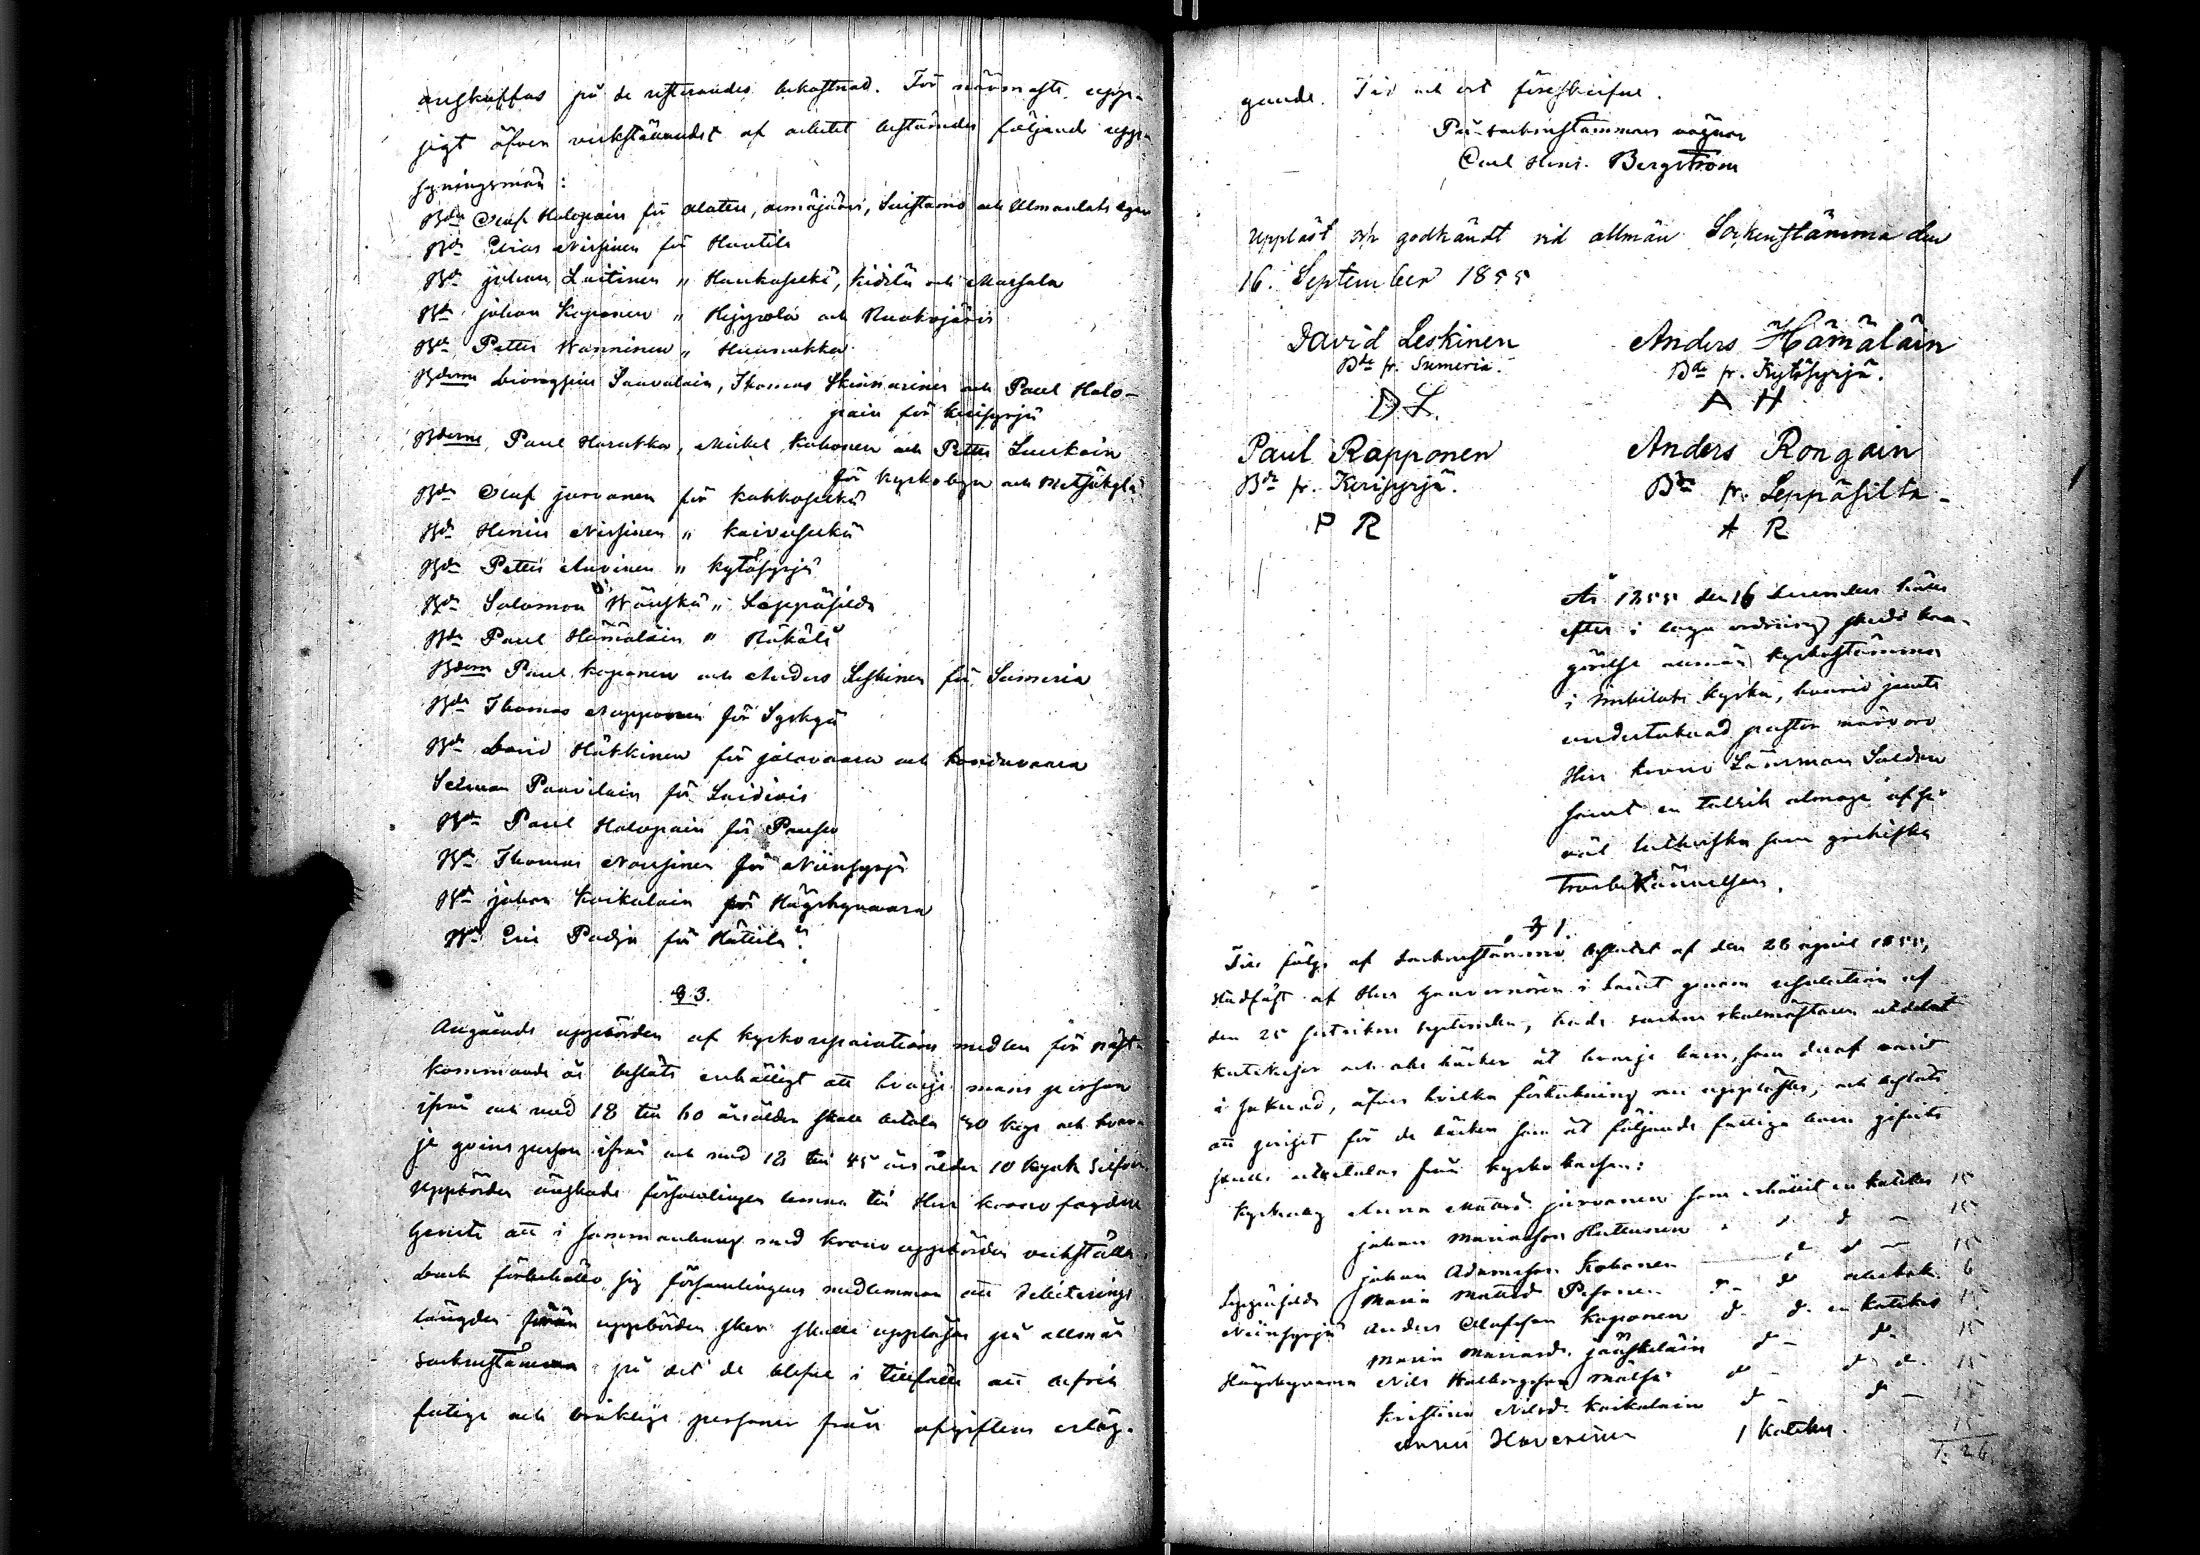 anskaffas på de resterandes bekostnad. För närmaste upp-
sigt öfver verkställandet af arbetet bestämdes följande upp-
syningsmän:
Bdn Olof Halopain för Alattu, Suistamo och Ulmanlaks byar
Bdn Elias Nissinen för Hautila
Bdn Johan Laitinen " Haukaselkä, Kidilä och Matsala
Bdn Johan Koponen " Hyppölä och Ruokojärvi
Bdn Petter Wänninen " Huunukka
Bderne Saavalain, Thomas Skinnarinen och Paul Halo-
pain för Kerisyrjä
Bderne Paul Harakka, Mikel Kähonen och Petter Laurikain
för Kyrkobyn och Metsäkylä
Bdn Olof Jarvanen för Kokkoselkä
Bdn Henric Nissinen " Koivuselkä
Bdn Petter Auvinen " Kytösyrjä
Bdn Salomon Wänskä " Leppäsilda
Bdn Paul Hämäläin " Näkäli
Bderne Paul Koponen och Anders Leskinen för Sumeria
Bdn Thomas Napponen för Syskyä
Bdn David Häkkinen för Jalovaara och Konduvaara
Selman Paavilain för
Bdn Paul Halopain för Pausu
Bdn Thomas Nousinen för Niinisyrjä
Bdn Johan Koikalain för Häyskynvaara
Bdn Eric Padja för Hättilä.
§ 3.
Angående uppbörden af kyrkoreparations medlen för näst-
kommande år beslöts enhälligt att hvarje mans person
ifrån och med 18 till 60 års ålder skall betala 20 kop och hvar-
je qvins person ifrån och med 18 till 45 års ålder 10 kopek Silfver
Uppbörden önskade församlingen lemna till Herr Krono fogden
Gente att i sammanhang med krono uppbörden verkställa.
dock förbehöllo sig församlingens medlemmar att Debiterings
längden förrän uppbörden sker skulle uppläsas på allmän
sockenstämma på det de blefve i tillfälle att befria
fatige och bräcklige personer från afgiftens erläg-
gande. Tid och ort föreskrifne.
På sockenstämmans vägnar
Carl Henr. Bergström
Uppläst och godkändt vid allmän Sockenstämma den
16. September 1855
David Leskinen Anders Hämäläin
Bde fr. Sumeria. Bde fr. Kytösyrjä.
D L. A H
Paul Rapponen Anders Rongain
Bde fr. Kerisyrjä. Bde fr. Leppäsilta
P R A R
År 1855 den 16 December hölls
efter i laga ordning skedd kun-
görelse allmän kyrkostämma
i Imbilaks kyrka, hvarvid jemte
undertecknad pastor närvoro
Herr Krono Länsman Saldan
samt en talrik almoge af så
väl lutherska som grekiska
Trosbekännelsen.
§ 1.
Till följe af sockenstämmo beslutet af den 26 april 1855,
stadfäst af Herr Gouvernören i Länet genom resolution af
den 25 sistvikne september, hade socken skolmästaren utdelat
katekeser och abc böcker åt hvarje barn, som deraf varit
i saknad, öfver hvilka förteckning nu upplästes, och beslöts
att priset för de böcker som åt följande fattige barn gifvits
skulle utbetalas från kyrko kassan:
Kyrkoby Anna Mattsd. Jarvanen som erhållit en katekes 15
Johan Mariasson Hutanen d d — 15
Johan Adamsson Kohonen — d d — 15
Leppäsilda Maria Mattsd. Pesonen d d abcbok. 6
Niinisyrjä Anders Olofsson Koponen d. d. en katekes 15
Maria Mariasd. Jääskeläin d — d. 15
Häyskynvaara Nils Halbergson Mälsä d — d d. 15
Kristina Nilsd. Koikalain d — d — 15
Anni Hoverinen 1 Katekes. 15
1. 26.